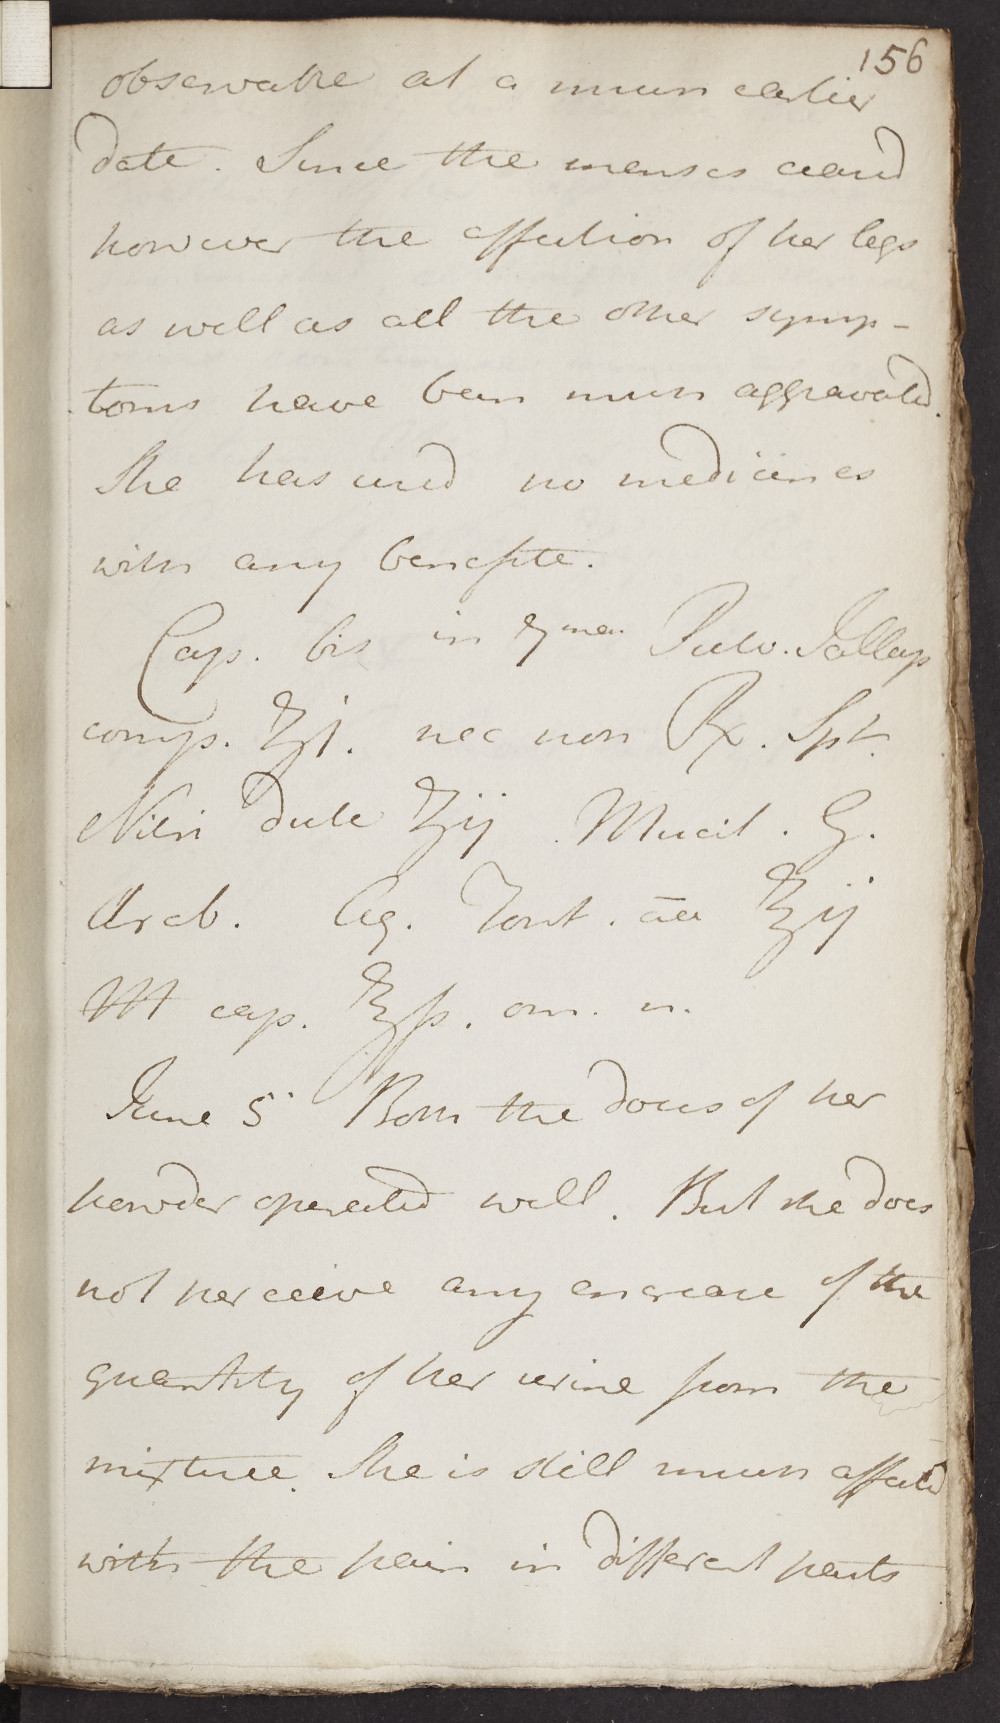 156
observable at a much earlier
date. Since the menses ceased
however the affection of her legs
as well as all the other symp-
toms have been much aggravated.
She has used no medicines
with any benefite.
Cap. bis in Pulv. Jallap
comp. ʒj. nec non ℞. Spt.
Nitri dulc ʒij. Mucil. G.
Arab. Aq. Font. āa ℥ij
M cap. ℥ſs. om. n.
June 5 Both the doses of her
powder operated well. But she does
not perceive any encrease of the
quantity of her urine from the
mixture. She is still much affected
with the pain in different parts